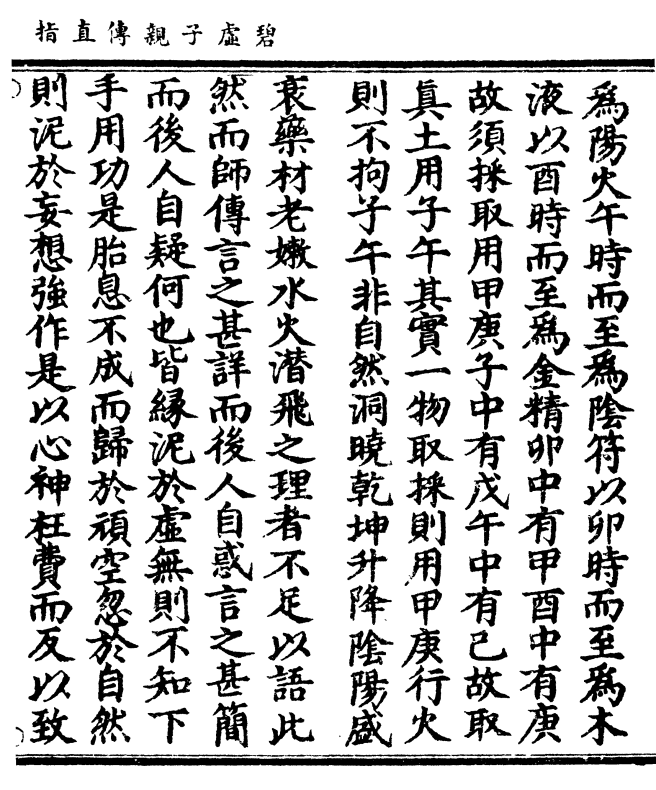 碧虛子親傳直指
爲陽火午時而至爲陰符以卯時而至爲木
液以酉時而至爲金精卯中有甲酉中有庚
故須採取用甲庚子中有戊午中有己故取
眞土用子午其實一物取採則用甲庚行火
則不拘子午非自然洞曉乾坤升降陰陽盛
衰藥材老嫩水火潜飛之理者不足以語此
然而師傳言之甚詳而後人自惑言之甚簡
而後人自疑何也皆緣泥於虛無則不知下
手用功是胎息不成而歸於頑空忽於自然
則泥於妄想強作是以心神枉費而反以致